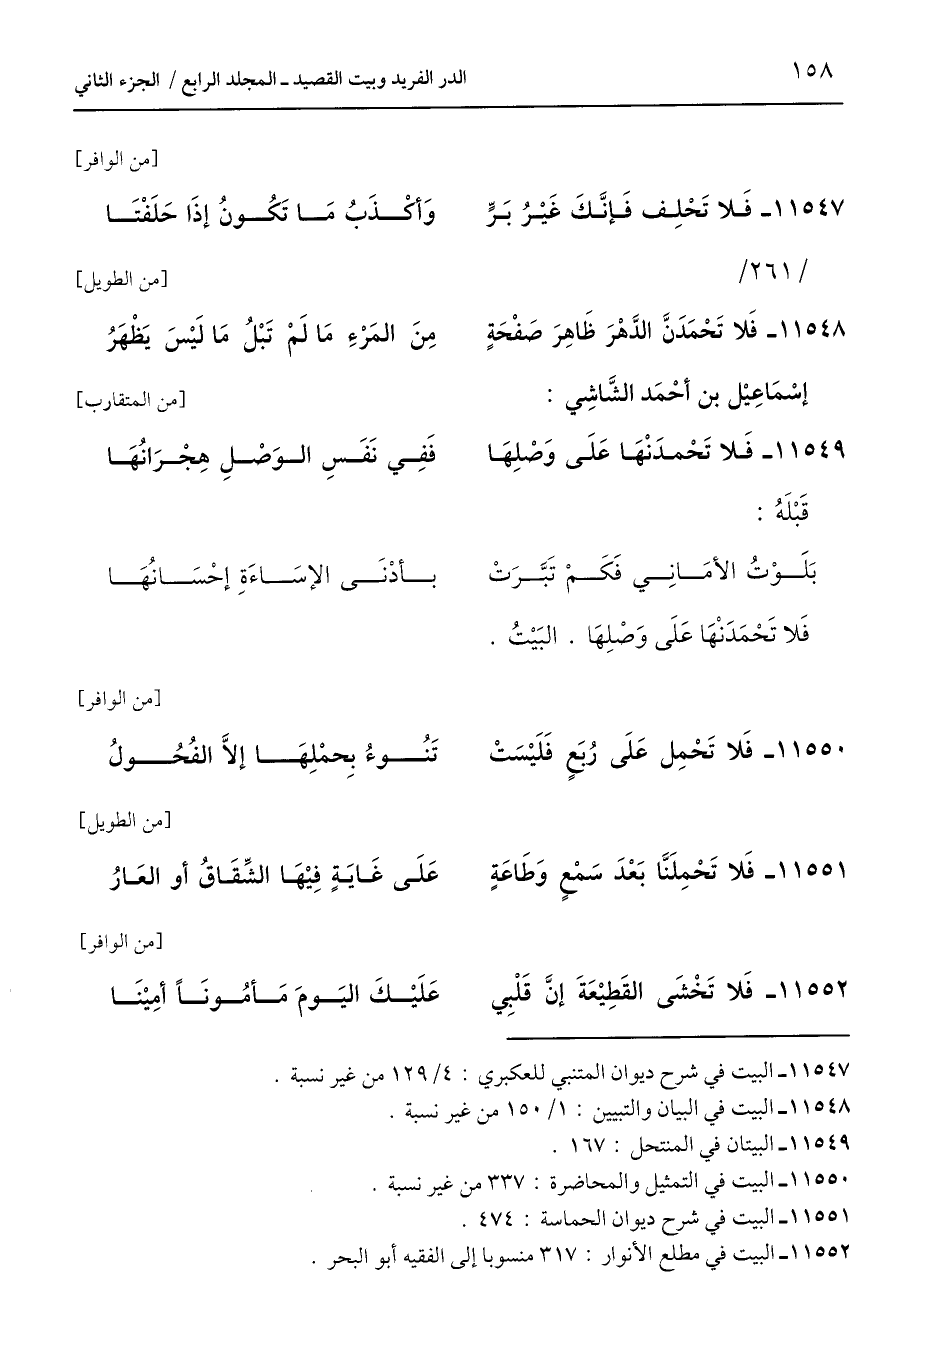 ١٥٨ الدر الفريد وبيت القصيد ـ المجلد الرابع / الجزء الثاني
[من الوافر]
١١٥٤٧ـ فَلا تَحْلِف فَإنَّكَ غَيْرُ بَرٍّ وَأكْذَبُ مَا تَكُونُ إذَا حَلَفْتَا
/٢٦١/
[من الطويل]
١١٥٤٨ـ فَلا تَحْمَدَنَّ الدَّهْرَ ظَاهِرَ صَفْحَةٍ مِنَ المَرْءِ مَا لَمْ تَبْلُ مَا لَيْسَ يَظْهَرُ
إسْمَاعِيْل بن أحْمَد الشَّاشِي : [من المتقارب]
١١٥٤٩ـ فَلا تَحْمدَنْهَا عَلَى وَصْلِهَا فَفِي نَفَسِ الوَصْلِ هِجْرَانُهَا
قَبْلَهُ :
بَلَوْتُ الأمَانِي فَكَمْ تَبَّرَتْ بأدْنَى الإسَاءَةِ إحْسَانُهَا
فَلا تَحْمَدَنْهَا عَلَى وَصْلِهَا . البَيْتُ .
[من الوافر]
١١٥٥٠ـ فَلا تَحْمِل عَلَى رُبَعٍ فَلَيْسَتْ تَنُوءُ بِحمْلِهَا إلاَّ الفُحُولُ
[من الطويل]
١١٥٥١ـ فَلا تَحْمِلَنَّا بَعْدَ سَمْعٍ وَطَاعَةٍ عَلَى غَايَةٍ فِيْهَا الشِّقَاقُ أو العَارُ
[من الوافر]
١١٥٥٢ـ فَلا تَخْشَى القَطِيْعَةَ إنَّ قَلْبِي عَلَيْكَ اليَومَ مَأمُونَاً أمِيْنَا
١١٥٤٧ـ البيت في شرح ديوان المتنبي للعكبري : ٤/ ١٢٩ من غير نسبة .
١١٥٤٨ـ البيت في البيان والتبيين : ١/ ١٥٠ من غير نسبة .
١١٥٤٩ـ البيتان في المنتحل : ١٦٧ .
١١٥٥٠ـ البيت في التمثيل والمحاضرة : ٣٣٧ من غير نسبة .
١١٥٥١ـ البيت في شرح ديوان الحماسة : ٤٧٤ .
١١٥٥٢ـ البيت في مطلع الأنوار : ٣١٧ منسوبا إلى الفقيه أبو البحر .